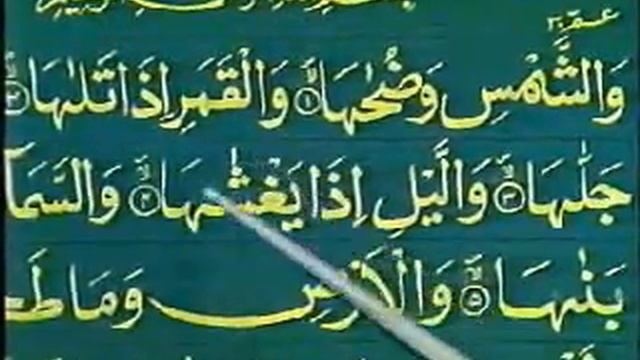 عم ٣٠
وَالشَّمْسِ وَضُحٰىهَا ۙ ﴿١﴾ وَالْقَمَرِ اِذَا تَلٰىهَا ۙ ﴿٢﴾
جَلّٰىهَا ۙ ﴿٣﴾ وَالَّيْلِ اِذَا يَغْشٰىهَا ۙ ﴿٤﴾ وَالسَّمَآ
بَنٰىهَا ۙ ﴿٥﴾ وَالْاَرْضِ وَمَا